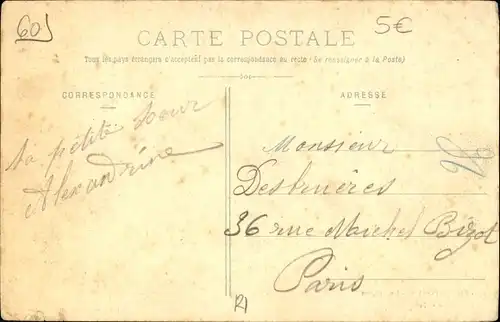 60
5€
CARTE POSTALE
Tous les pays étrangers n'acceptent pas la correspondance au recto (Se renseigner à la Poste)
CORRESPONDANCE
ADRESSE
Ta petite sœur
Alexandrine
Monsieur
Desbruères
36 rue Michel Bizot
Paris